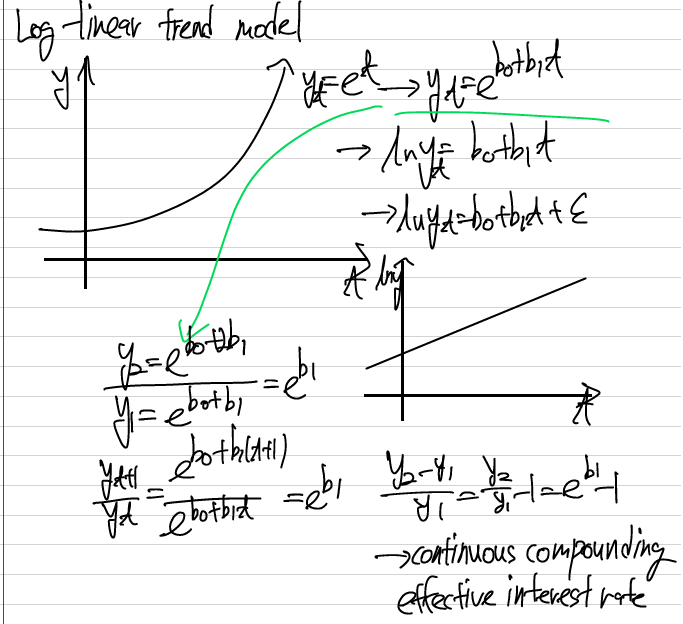 Log-linear trend model
y
yt=e^t → yt=e^(b0+b1t)
→ lnyt= b0+b1t
→ lnyt=b0+b1t+ε
t
lny
t
y2=e^(b0+2b1) / y1=e^(b0+b1) =e^b1
yt+1/yt = e^(b0+b1(t+1)) / e^(b0+b1t) =e^b1
(y2-y1)/y1 = y2/y1 -1=e^b1-1
→continuous compounding
effective interest rate